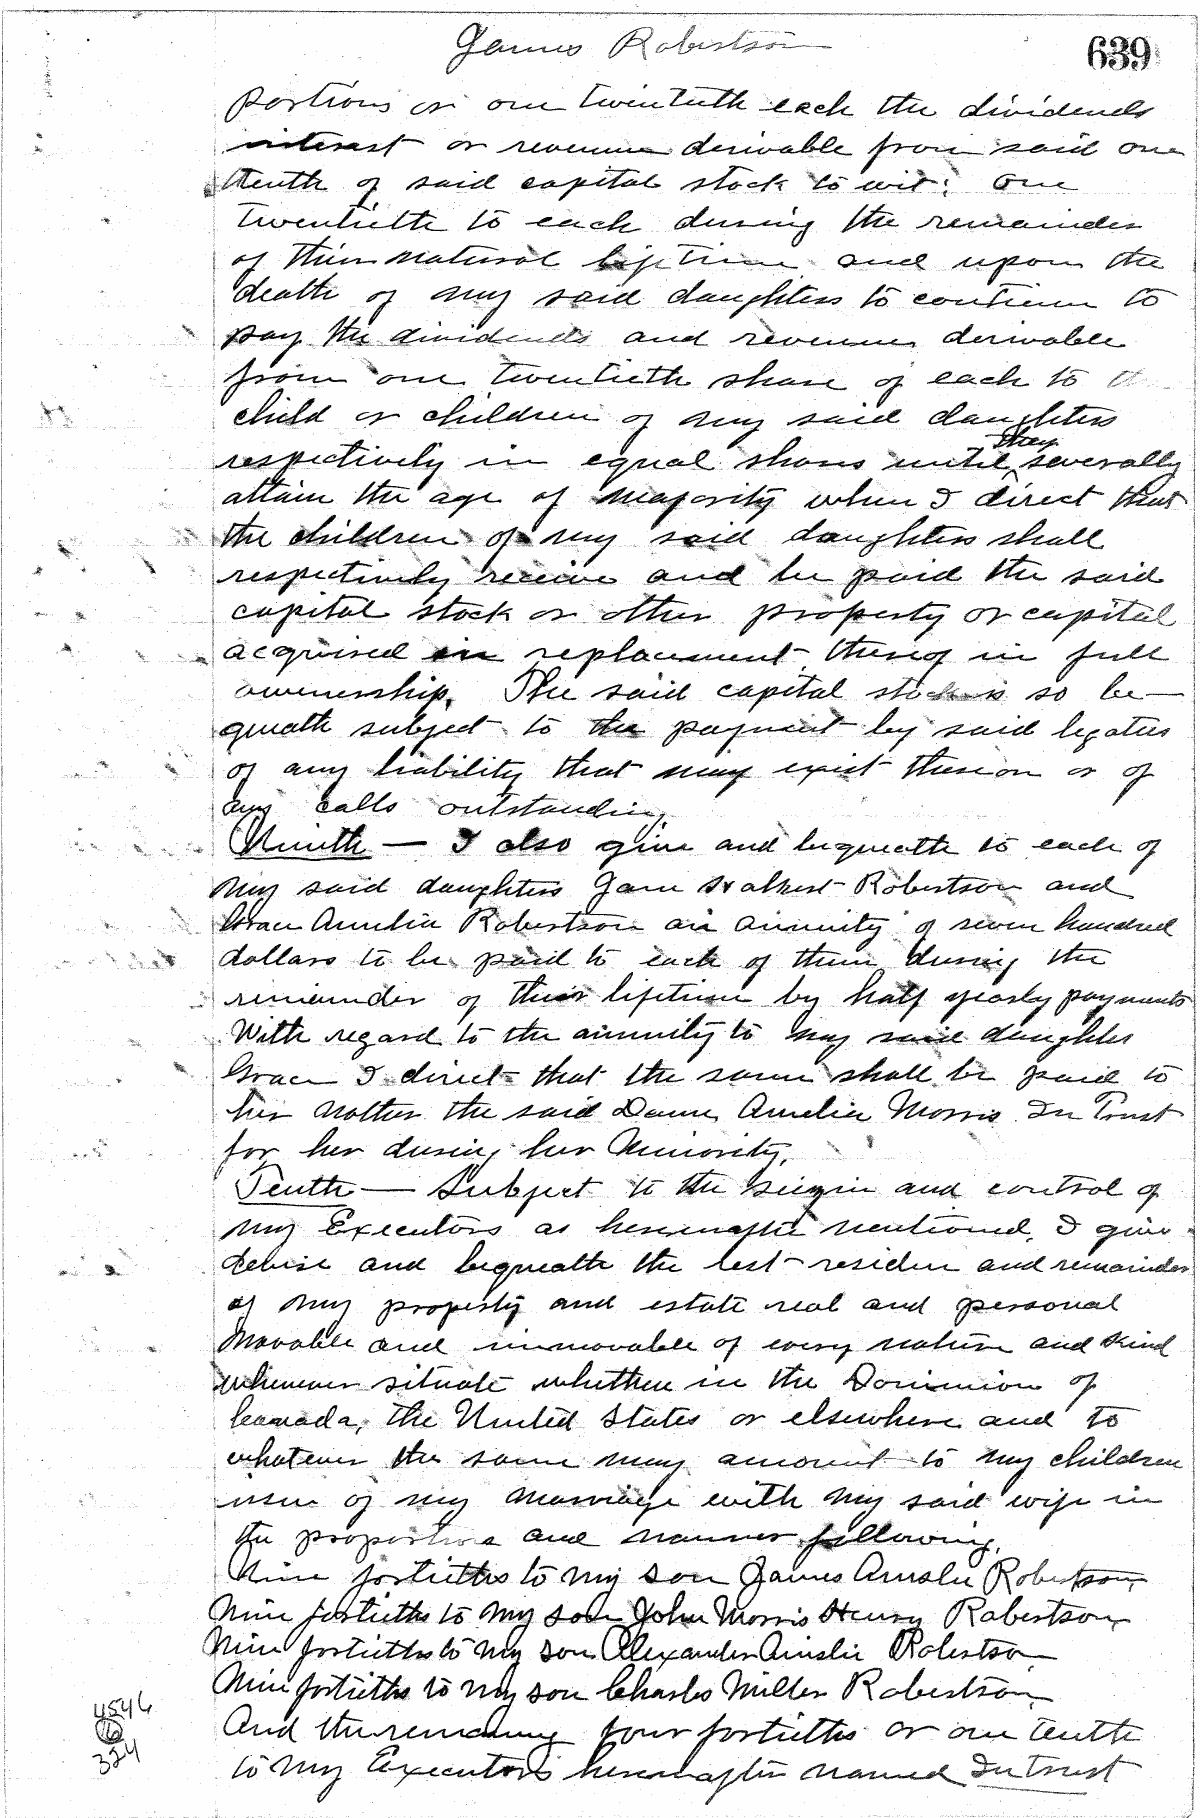 James Robertson
639
portions or one twentieth each the dividends
interest or revenue derivable from said one
tenth of said capital stock to wit: One
twentieth to each during the remainder
of their natural lifetime and upon the
death of my said daughters to continue to
pay the dividends and revenues derivable
from one twentieth share of each to th
child or children of my said daughters
respectively in equal shares until they severally
attain the age of majority when I direct that
the children of my said daughters shall
respectively receive and be paid the said
capital stock or other property or capital
acquired in replacement thereof in full
ownership. The said capital stock is so be-
queath subject to the payment by said legatees
of any liability that may exist thereon or of
any calls outstanding.
Ninth — I also give and bequeath to each of
my said daughters Jane Robertson and
Grace Amelia Robertson an annuity of seven hundred
dollars to be paid to each of them during the
remainder of their lifetime by half yearly payments
With regard to the annuity to my said daughter
Grace I direct that the same shall be paid to
her Mother the said Dame Amelia Morris In Trust
for her during her Minority.
Tenth — Subject to the seizin and control of
my Executors as hereinafter mentioned, I give
devise and bequeath the rest residue and remainder
of my property and estate real and personal
Movable and immovable of every nature and kind
wherever situate whether in the Dominion of
Canada, the United States or elsewhere and to
whatever the same may amount to my children
issue of my marriage with my said wife in
the proportions and manner following.
Nine fortieths to my son James Ainslie Robertson,
Nine fortieths to my son John Morris Henry Robertson,
Nine fortieths to my son Alexander Ainslie Robertson
Nine fortieths to my son Charles Miller Robertson,
And the remaining four fortieths or one tenth
to my Executors hereinafter named In Trust
4546
16
324